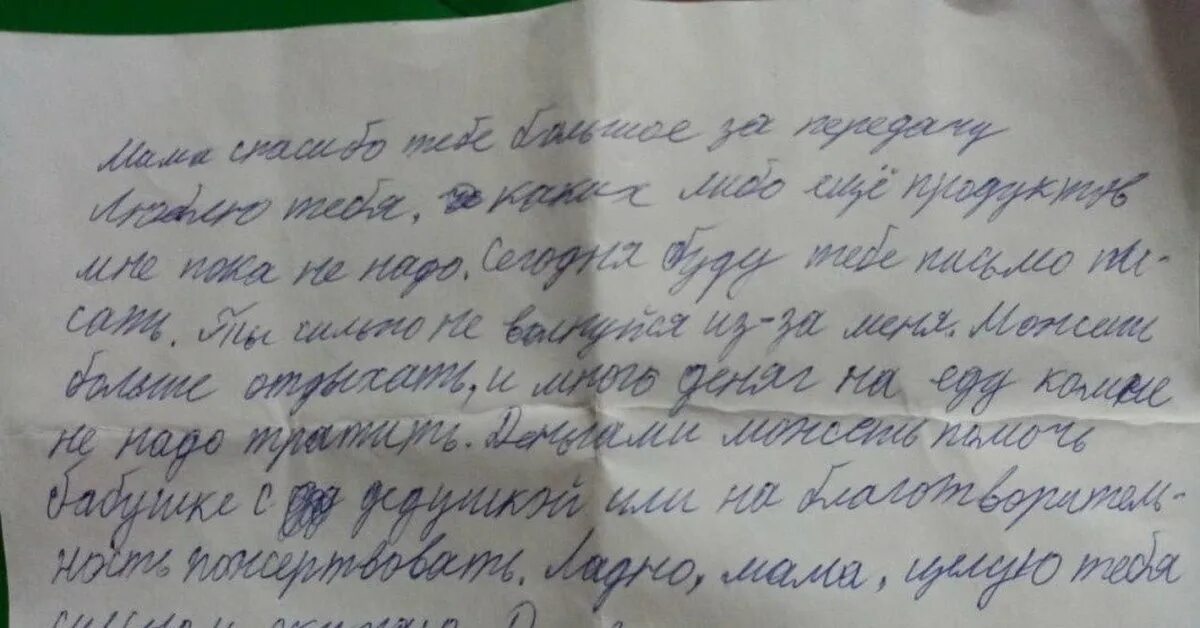 Мама спасибо тебе большое за передачу
Люблю тебя, каких либо ещё продуктов
мне пока не надо. Сегодня буду тебе письмо пи-
сать. Ты сильно не волнуйся из-за меня. Можешь
больше отдыхать, и много деняг на еду ко мне
не надо тратить. Деньгами можешь помочь
бабушке с дедушкой или на благотворитель-
ность пожертвовать. Ладно, мама, целую тебя